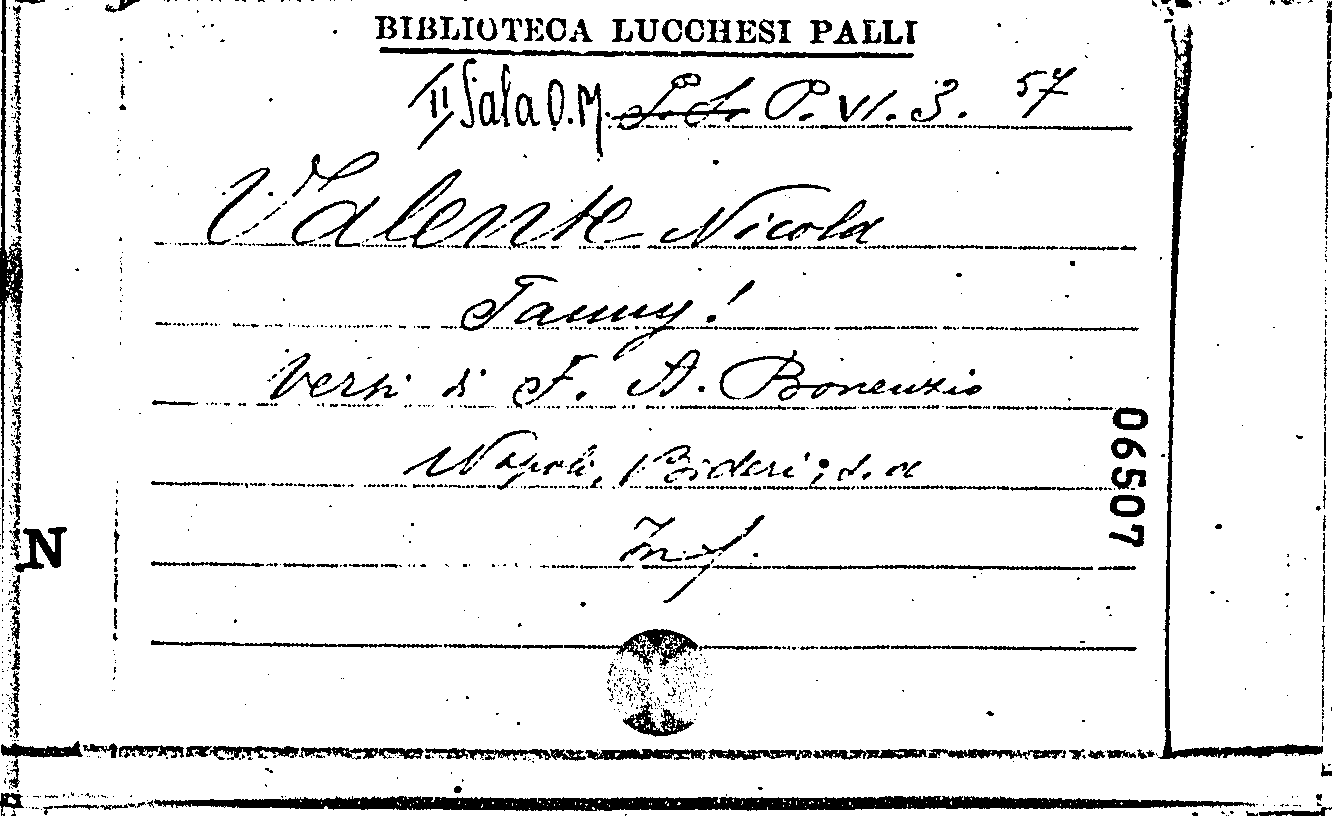 BIBLIOTECA LUCCHESI PALLI
II Sala O.M. P.S. P. VI. 3. 57
Valente Nicola
Fanny!
Versi di F. A. Bonenzio
Napoli, Bideri; s.a
In f.
06507
N